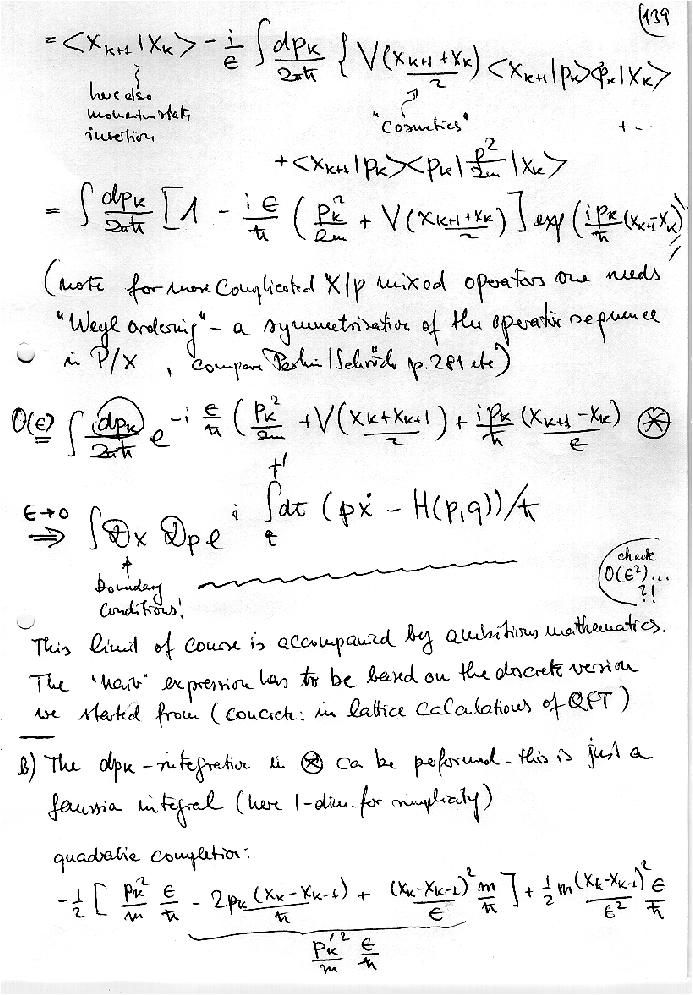 139
= <x_{k+1}|x_k> - i/ε ∫ dp_k/2πħ { V(x_{k+1}+x_k)/2 <x_{k+1}|p_k><p_k|x_k>
here also
momentum state
insertion
"Cosmetics"
+ ..
+ <x_{k+1}|p_k><p_k| p²/2m |x_k>
= ∫ dp_k/2πħ [1 - iε/ħ (p_k²/2m + V(x_{k+1}+x_k)/2)] exp (ip_k/ħ (x_{k+1}-x_k))
(note for more complicated X/p mixed operators one needs
"Weyl ordering" - a symmetrisation of the operator sequence
in P/X , compare Peskin/Schröd. p. 281 etc)
O(ε) = ∫ (dp_k)/2πħ e^{-i ε/ħ (p_k²/2m + V(x_k+x_{k+1})/2) + ip_k/ħ (x_{k+1}-x_k)/ε} ⊛
ε→0 ⇒ ∫ Dx Dp e^{i ∫_t^{t'} dt (pẋ - H(p,q))/ħ}
boundary
conditions!
check
O(ε²)...
?!
This limit of course is accompanied by ambitious mathematics.
The 'naiv' expression has to be based on the discrete version
we started from (concrete: in lattice calculations of QFT)
B) The dp_k - integration in ⊛ can be peformed - this is just a
Gaussian integral (here 1-dim. for simplicity)
quadratic completion:
-1/2 [ p_k²/m ε/ħ - 2p_k (x_k-x_{k-1})/ħ + (x_k-x_{k-1})²/ε m/ħ ] + 1/2 m (x_k-x_{k-1})²/ε² ε/ħ
p_k'²/m ε/ħ